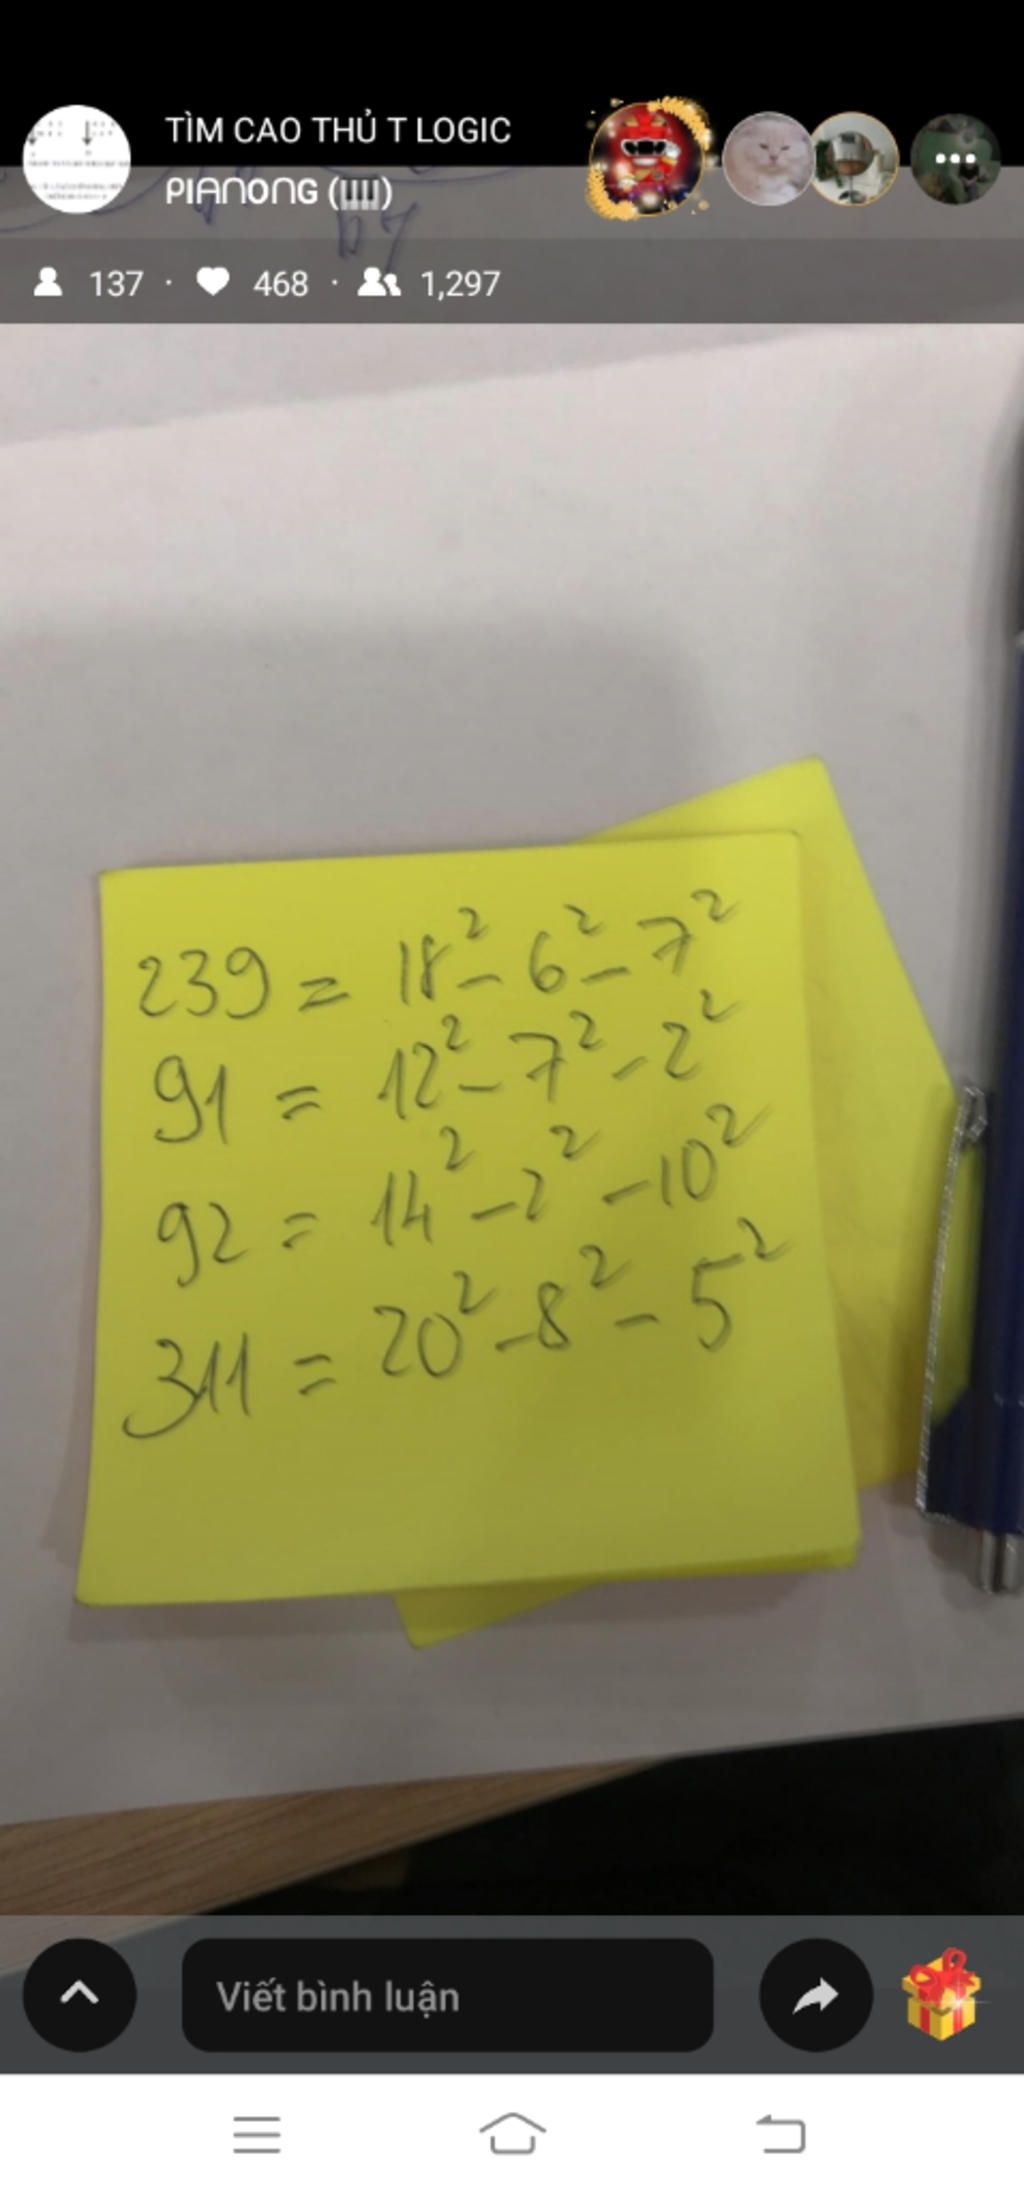 TÌM CAO THỦ T LOGIC
PIANONG (🎹)
137 · 468 · 1,297
b7
239 = 18² - 6² - 7²
91 = 12² - 7² - 2²
92 = 14² - 2² - 10²
311 = 20² - 8² - 5²
Viết bình luận